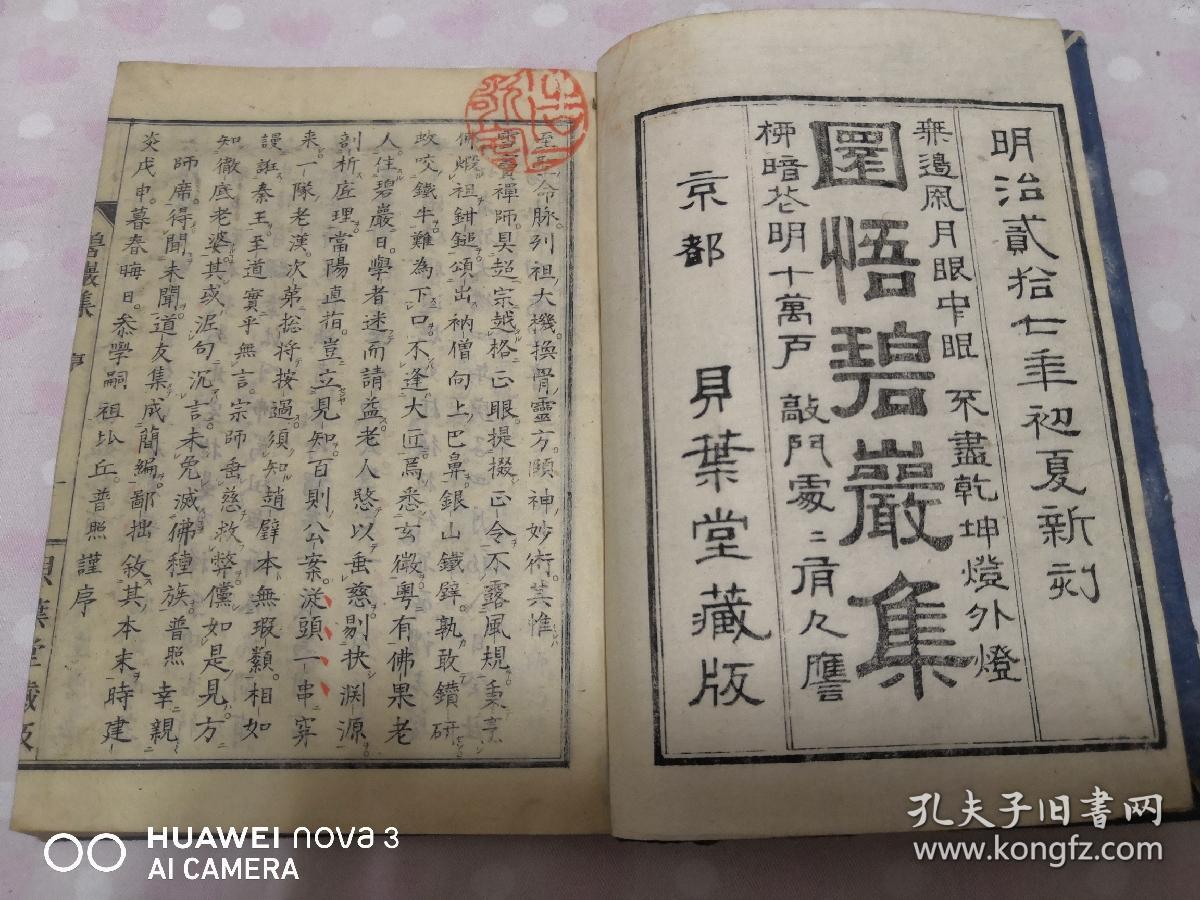 明治貳拾七年初夏新刻
無邊風月眼中眼 不盡乾坤燈外燈
圜悟碧巖集
柳暗花明十萬戶 敲門處〻有人譍
京都 貝葉堂藏版
至聖命脉列祖大機換骨靈方頤神妙術其惟
雪竇禪師具超宗越格正眼提掇正令不露風規秉烹
佛煅祖鉗鎚頌出衲僧向上巴鼻銀山鐵壁孰敢鑽研
蚊咬鐵牛難為下口不逢大匠焉悉玄微粤有佛果老
人住碧巖日學者迷而請益老人愍以垂慈剔抉淵源
剖析底理當陽直指豈立見知百則公案從頭一串穿
来一隊老漢次第総將按過須知趙璧本無瑕纇相如
謾誑秦王至道實乎無言宗師垂慈救弊儻如是見方
知徹底老婆其或泥句沉言未免滅佛種族普照幸親
師席得聞未聞道友集成簡編鄙拙敘其本末時建
炎戊申暮春晦日參學嗣祖比丘普照謹序
碧巖集 序 一 貝葉堂藏版
HUAWEI nova 3
AI CAMERA
孔夫子旧书网
www.kongfz.com